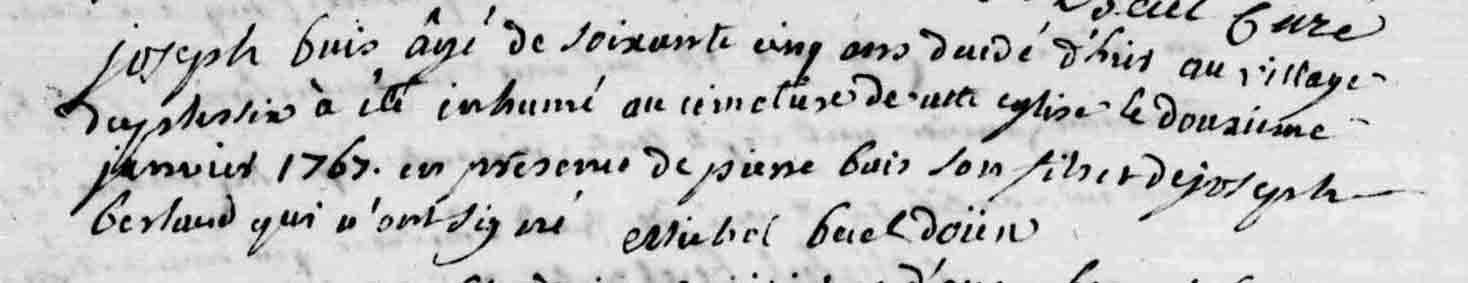 Curé
joseph buis âgé de soixante cinq ans decedé d'hier au village
duplessix à été inhumé au cimetiere de cette eglise le douzieme
janvier 1767. en presence de pierre buis son fils et de joseph
berland qui n'ont signé Michel